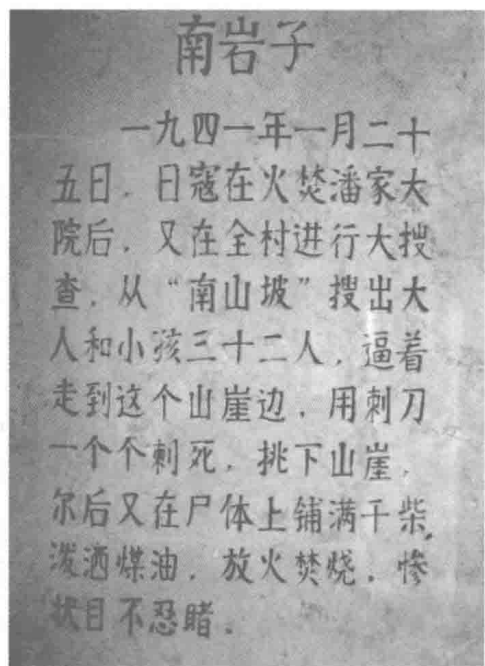 南岩子
一九四一年一月二十
五日，日寇在火焚潘家大
院后，又在全村进行大搜
查，从“南山坡”搜出大
人和小孩三十二人，逼着
走到这个山崖边，用刺刀
一个个刺死，挑下山崖，
尔后又在尸体上铺满干柴，
泼洒煤油，放火焚烧，惨
状目不忍睹。